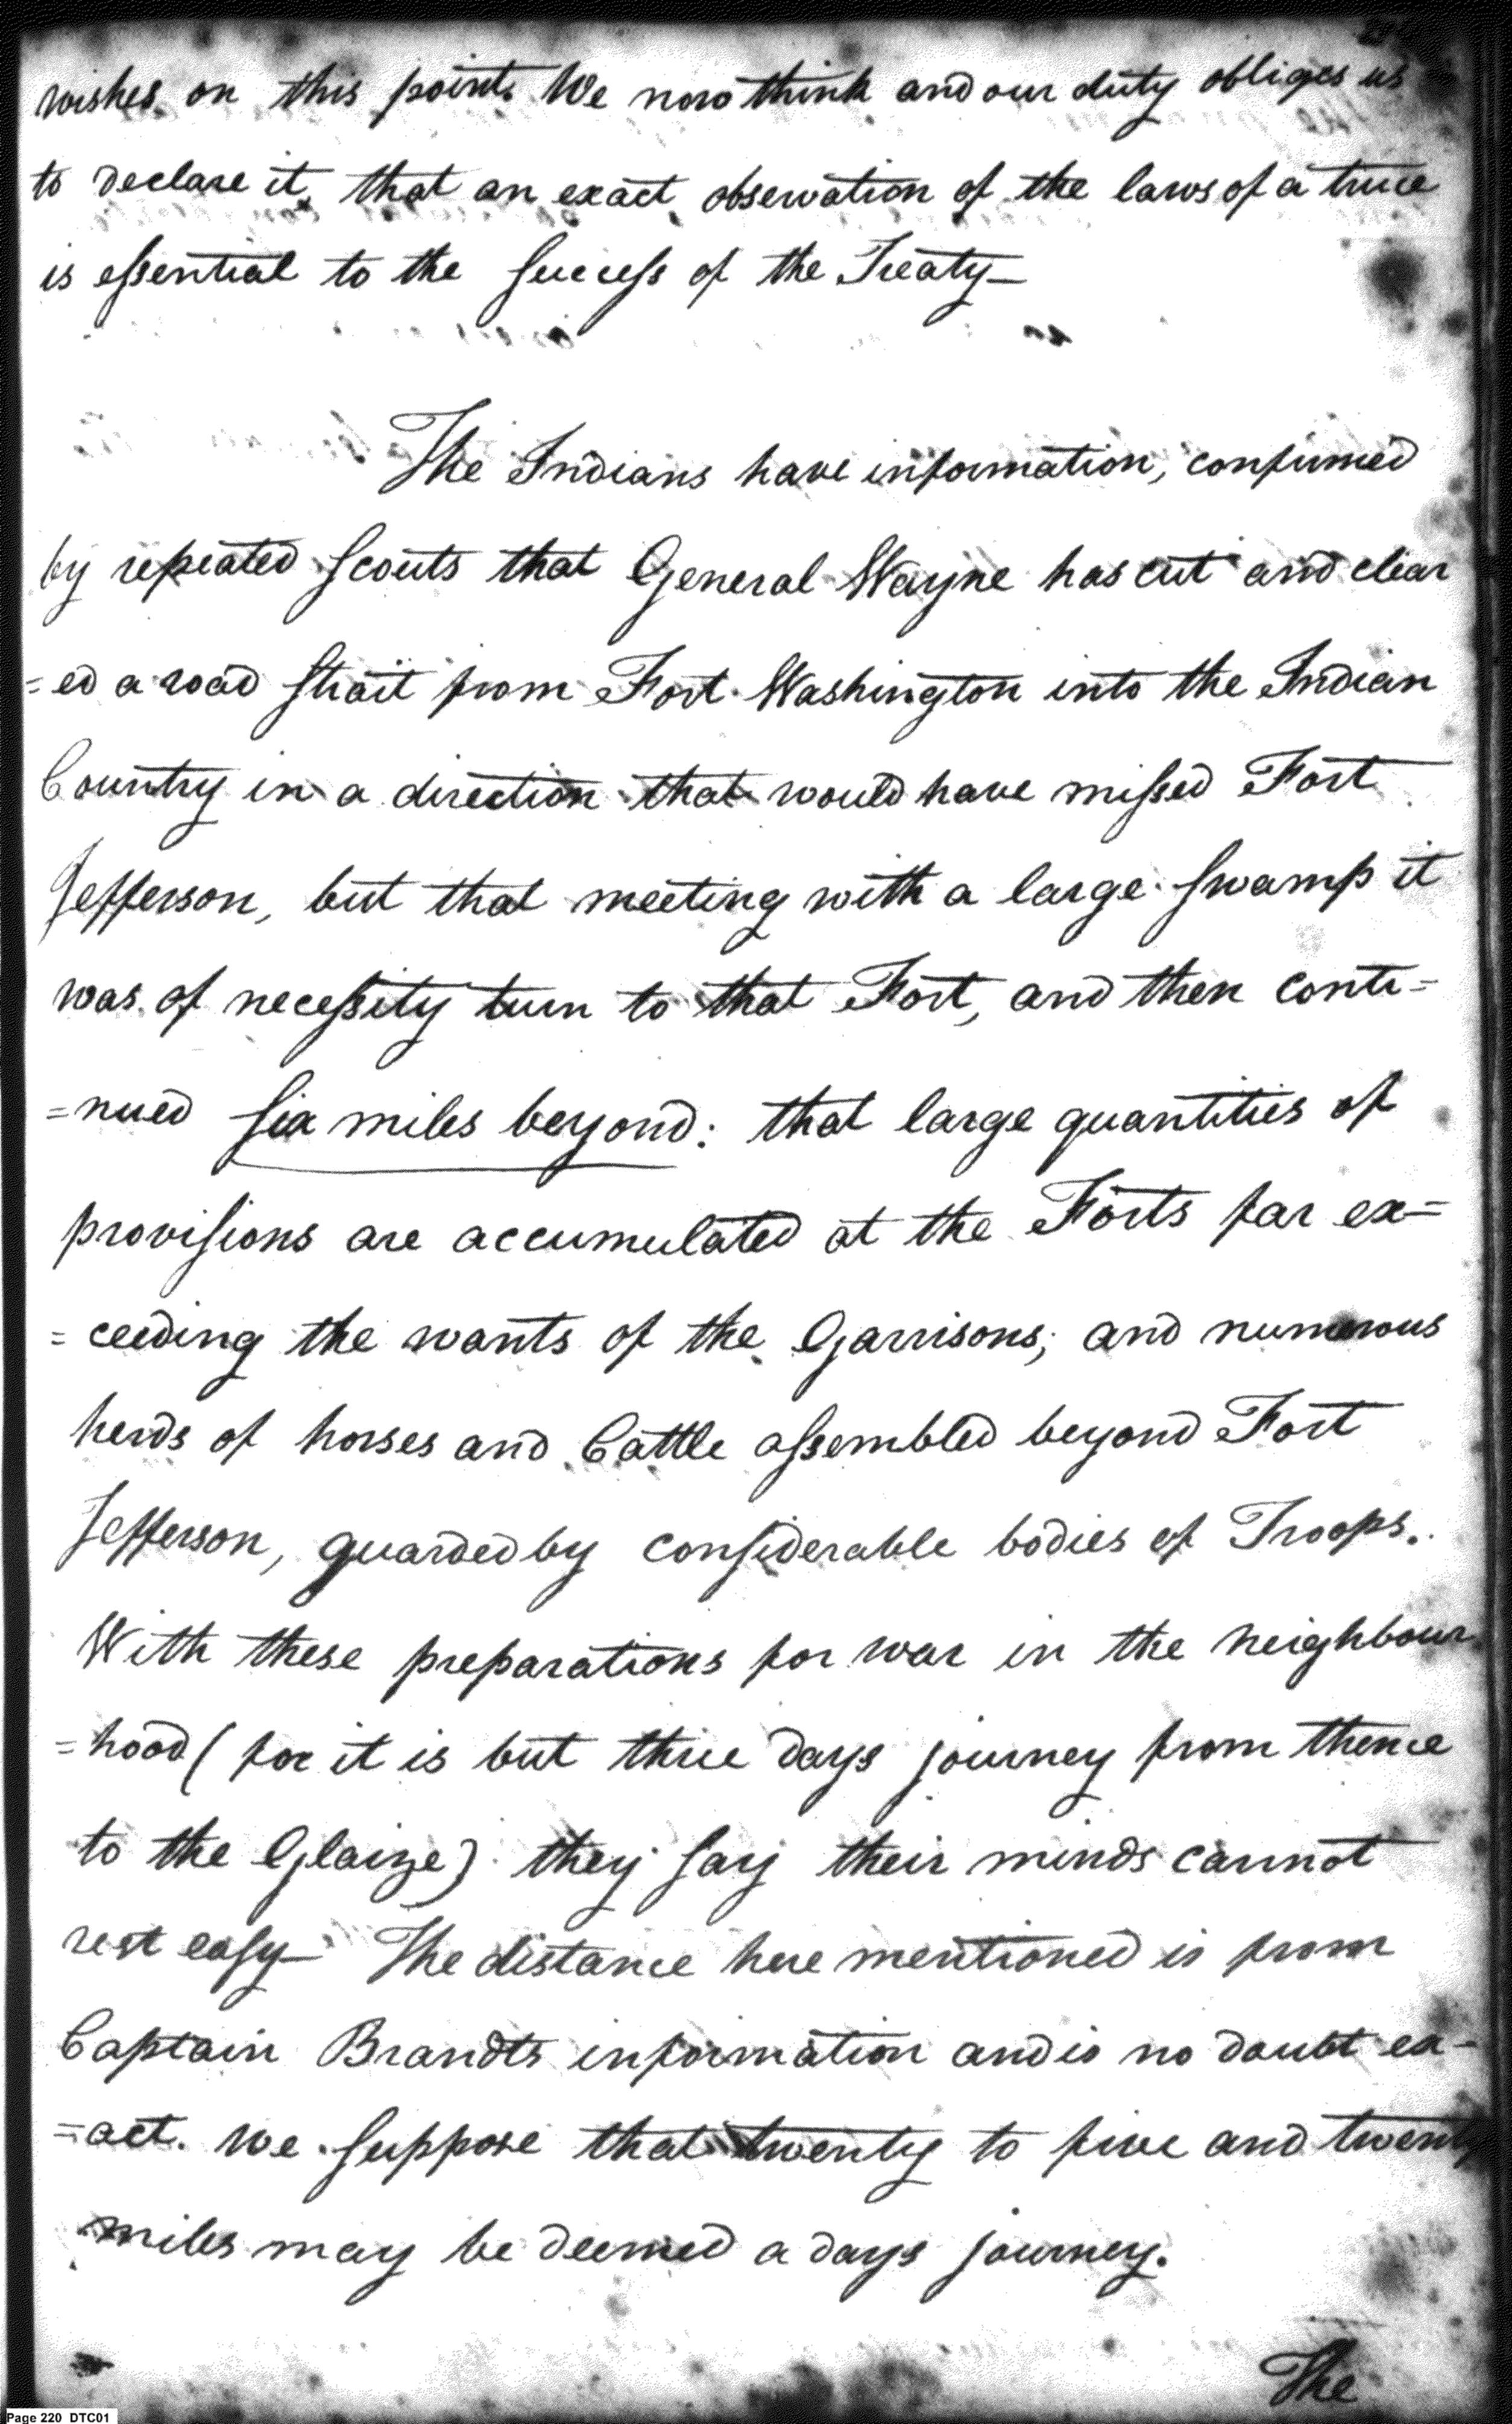 wishes on this point. We now think and our duty obliges us
to declare it, that an exact observation of the laws of a truce
is essential to the Success of the Treaty—
The Indians have information, confirmed
by repeated Scouts that General Wayne has cut and clear
=ed a road Strait from Fort Washington into the Indian
Country in a direction that would have missed Fort
Jefferson, but that meeting with a large Swamp it
was of necessity turn to that Fort, and then conti=
=nued Six miles beyond: that large quantities of
provisions are accumulated at the Forts far ex=
=ceeding the wants of the Garrisons; and numerous
herds of horses and Cattle assembled beyond Fort
Jefferson, guarded by considerable bodies of Troops.
With these preparations for war in the neighbour
=hood (for it is but three days journey from thence
to the Glaize) they Say their minds cannot
rest easy— The distance here mentioned is from
Captain Brandts information and is no doubt ex-
=act. We Suppose that twenty to five and twenty
miles may be deemed a days journey.
The
Page 220 DTC01